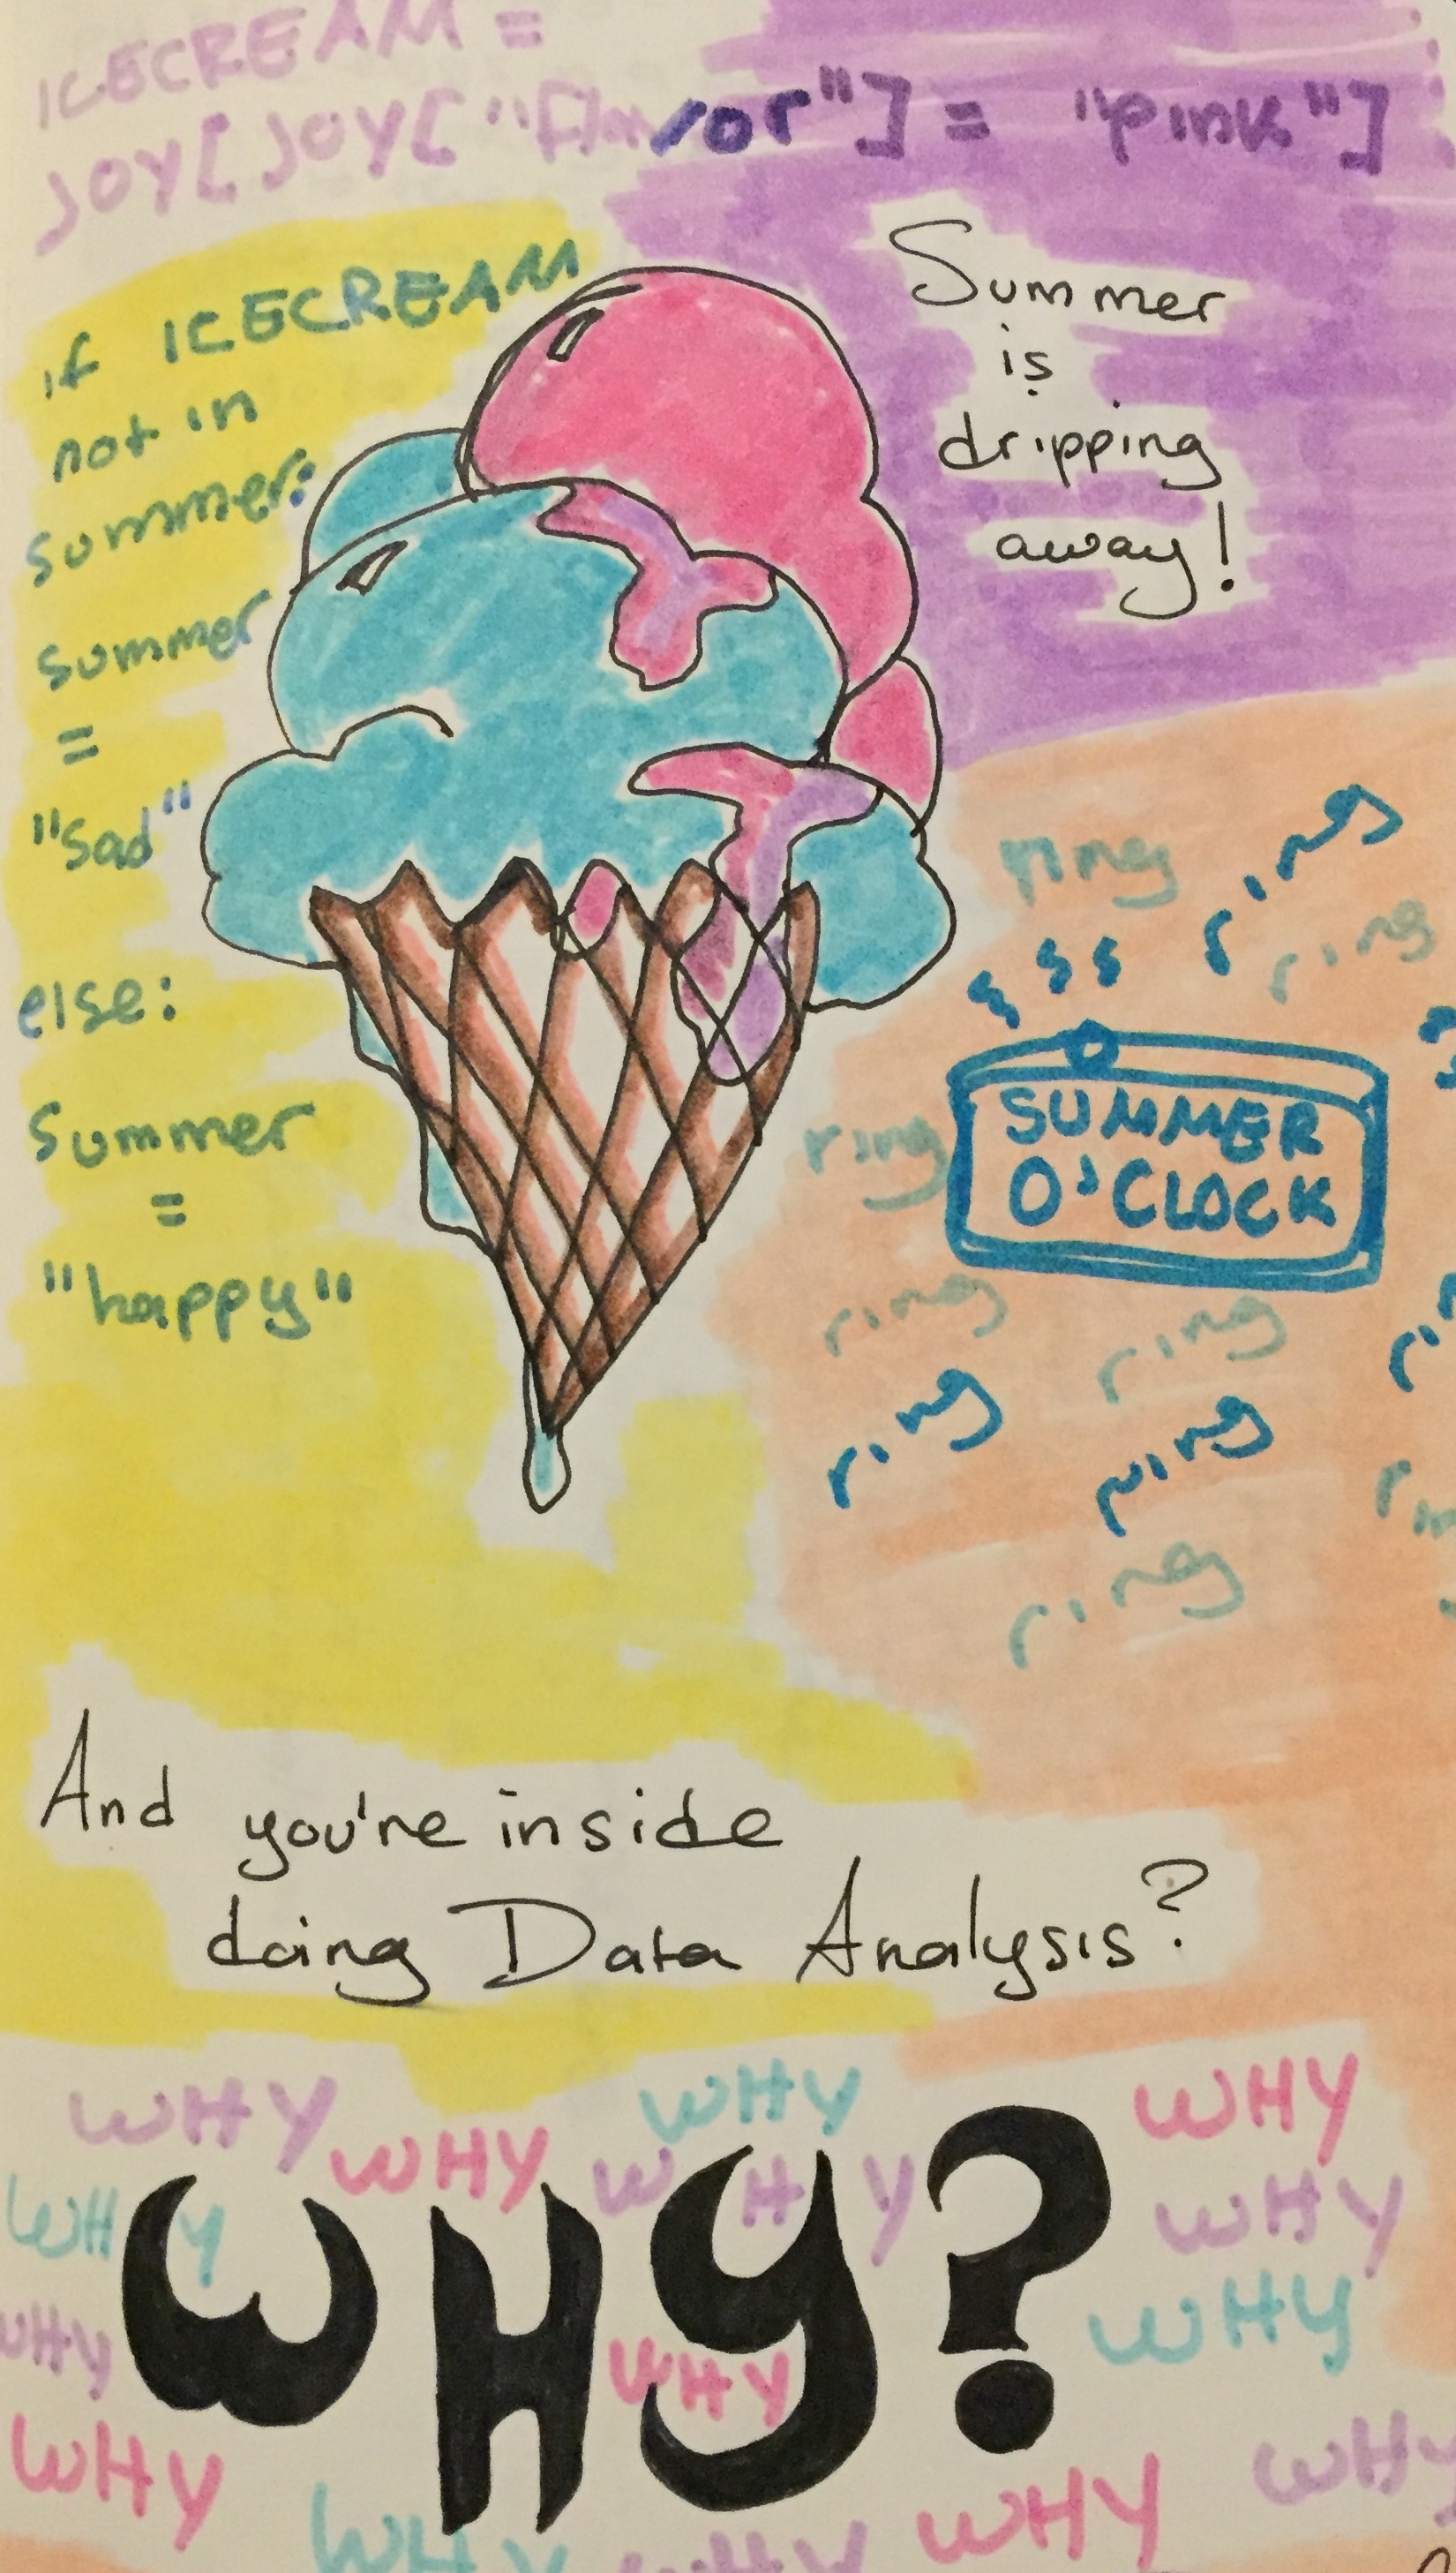 ICECREAM =
JOY[JOY["Flavor"] = "pink"]
if ICECREAM
not in
summer:
summer
=
"sad"
else:
summer
=
"happy"
Summer
is
dripping
away!
ring
ring
ring
SUMMER
O'CLOCK
ring
ring
ring
ring
ring
ring
And you're inside
doing Data Analysis?
WHY
WHY
WHY
WHY
WHY
WHY
WHY
WHY?
WHY
WHY
WHY
WHY
WHY
WHY
WHY
WHY